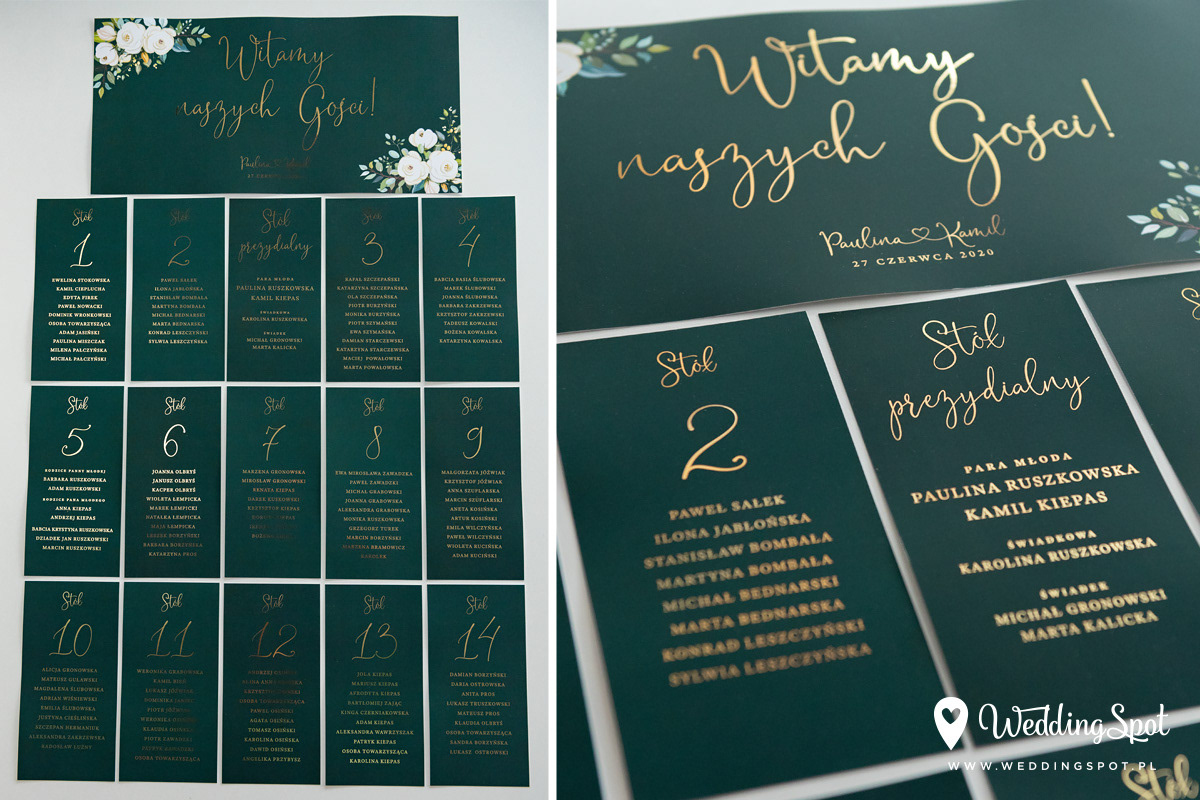 Witamy
naszych Gości!
Paulina Kamil
27 CZERWCA 2020
Stół
1
EWELINA STOKOWSKA
KAMIL CIEPLUCHA
EDYTA FIREK
PAWEŁ NOWACKI
DOMINIK WRONKOWSKI
OSOBA TOWARZYSZĄCA
ADAM JASIŃSKI
PAULINA MISZCZAK
MILENA PAŁCZYŃSKA
MICHAŁ PAŁCZYŃSKI
Stół
2
PAWEŁ SAŁEK
ILONA JABŁOŃSKA
STANISŁAW BOMBALA
MARTYNA BOMBALA
MICHAŁ BEDNARSKI
MARTA BEDNARSKA
KONRAD LESZCZYŃSKI
SYLWIA LESZCZYŃSKA
Stół
prezydialny
PARA MŁODA
PAULINA RUSZKOWSKA
KAMIL KIEPAS
ŚWIADKOWA
KAROLINA RUSZKOWSKA
ŚWIADEK
MICHAŁ GRONOWSKI
MARTA KALICKA
Stół
3
RAFAŁ SZCZEPAŃSKI
KATARZYNA SZCZEPAŃSKA
OLA SZCZEPAŃSKA
PIOTR BURZYŃSKI
MONIKA BURZYŃSKA
PIOTR SZYMAŃSKI
EWA SZYMAŃSKA
DAMIAN STARCZEWSKI
KATARZYNA STARCZEWSKA
MACIEJ POWAŁOWSKI
MARTA POWAŁOWSKA
Stół
4
BABCIA BASIA ŚLUBOWSKA
MAREK ŚLUBOWSKI
JOANNA ŚLUBOWSKA
BARBARA ZAKRZEWSKA
KRZYSZTOF ZAKRZEWSKI
TADEUSZ KOWALSKI
BOŻENA KOWALSKA
KATARZYNA KOWALSKA
Stół
5
RODZICE PANNY MŁODEJ
BARBARA RUSZKOWSKA
ADAM RUSZKOWSKI
RODZICE PANA MŁODEGO
ANNA KIEPAS
ANDRZEJ KIEPAS
BABCIA KRYSTYNA RUSZKOWSKA
DZIADEK JAN RUSZKOWSKI
MARCIN RUSZKOWSKI
Stół
6
JOANNA OLBRYŚ
JANUSZ OLBRYŚ
KACPER OLBRYŚ
WIOLETA LEMPICKA
MAREK LEMPICKI
NATALKA LEMPICKA
MAJA LEMPICKA
LESZEK BORZYŃSKI
BARBARA BORZYŃSKA
KATARZYNA PROS
Stół
7
MARZENA GRONOWSKA
MIROSŁAW GRONOWSKI
RENATA KIEPAS
DAREK RUSZKOWSKI
KRZYSZTOF KIEPAS
Stół
8
EWA MIROSŁAWA ZAWADZKA
PAWEŁ ZAWADZKI
MICHAŁ GRABOWSKI
JOANNA GRABOWSKA
ALEKSANDRA GRABOWSKA
MONIKA RUSZKOWSKA
GRZEGORZ TUREK
MARCIN BORZYŃSKI
MARZENA BRAMOWICZ
Stół
9
MAŁGORZATA JÓŹWIAK
KRZYSZTOF JÓŹWIAK
ANNA SZUFLARSKA
MARCIN SZUFLARSKI
ANETA KOSIŃSKA
ARTUR KOSIŃSKI
EMILA WILCZYŃSKA
PAWEŁ WILCZYŃSKI
WIOLETA RUCIŃSKA
ADAM RUCIŃSKI
Stół
10
ALICJA GRONOWSKA
MATEUSZ GUŁAWSKI
MAGDALENA ŚLUBOWSKA
ADRIAN WIŚNIEWSKI
EMILIA ŚLUBOWSKA
JUSTYNA CIEŚLIŃSKA
SZCZEPAN HERMANIUK
ALEKSANDRA ZAKRZEWSKA
RADOSŁAW LUŹNY
Stół
11
WERONIKA GRABOWSKA
KAMIL
ŁUKASZ JÓŹWIAK
DOMINIKA
PIOTR JÓŹWIAK
WERONIKA
KLAUDIA
PIOTR ZAWADZKI
OSOBA TOWARZYSZĄCA
Stół
12
OSOBA TOWARZYSZĄCA
PAWEŁ OSIŃSKI
AGATA OSIŃSKA
TOMASZ OSIŃSKI
KAROLINA OSIŃSKA
DAWID OSIŃSKI
ANGELIKA PRZYBYSZ
Stół
13
JOLA KIEPAS
MARIUSZ KIEPAS
AFRODYTA KIEPAS
BARTŁOMIEJ ZAJĄC
KINGA CZERNIAKOWSKA
ADAM KIEPAS
ALEKSANDRA WAWRZYSZAK
PATRYK KIEPAS
OSOBA TOWARZYSZĄCA
KAROLINA KIEPAS
Stół
14
DAMIAN BORZYŃSKI
DARIA OSTROWSKA
ANITA PROS
ŁUKASZ TRUSZKOWSKI
MATEUSZ PROS
KLAUDIA OLBRYŚ
OSOBA TOWARZYSZĄCA
SANDRA BORZYŃSKA
ŁUKASZ OSTROWSKI
Witamy
naszych Gości!
Paulina Kamil
27 CZERWCA 2020
Stół
2
PAWEŁ SAŁEK
ILONA JABŁOŃSKA
STANISŁAW BOMBALA
MARTYNA BOMBALA
MICHAŁ BEDNARSKI
MARTA BEDNARSKA
KONRAD LESZCZYŃSKI
SYLWIA LESZCZYŃSKA
Stół
prezydialny
PARA MŁODA
PAULINA RUSZKOWSKA
KAMIL KIEPAS
ŚWIADKOWA
KAROLINA RUSZKOWSKA
ŚWIADEK
MICHAŁ GRONOWSKI
MARTA KALICKA
WeddingSpot
WWW.WEDDINGSPOT.PL
Stół